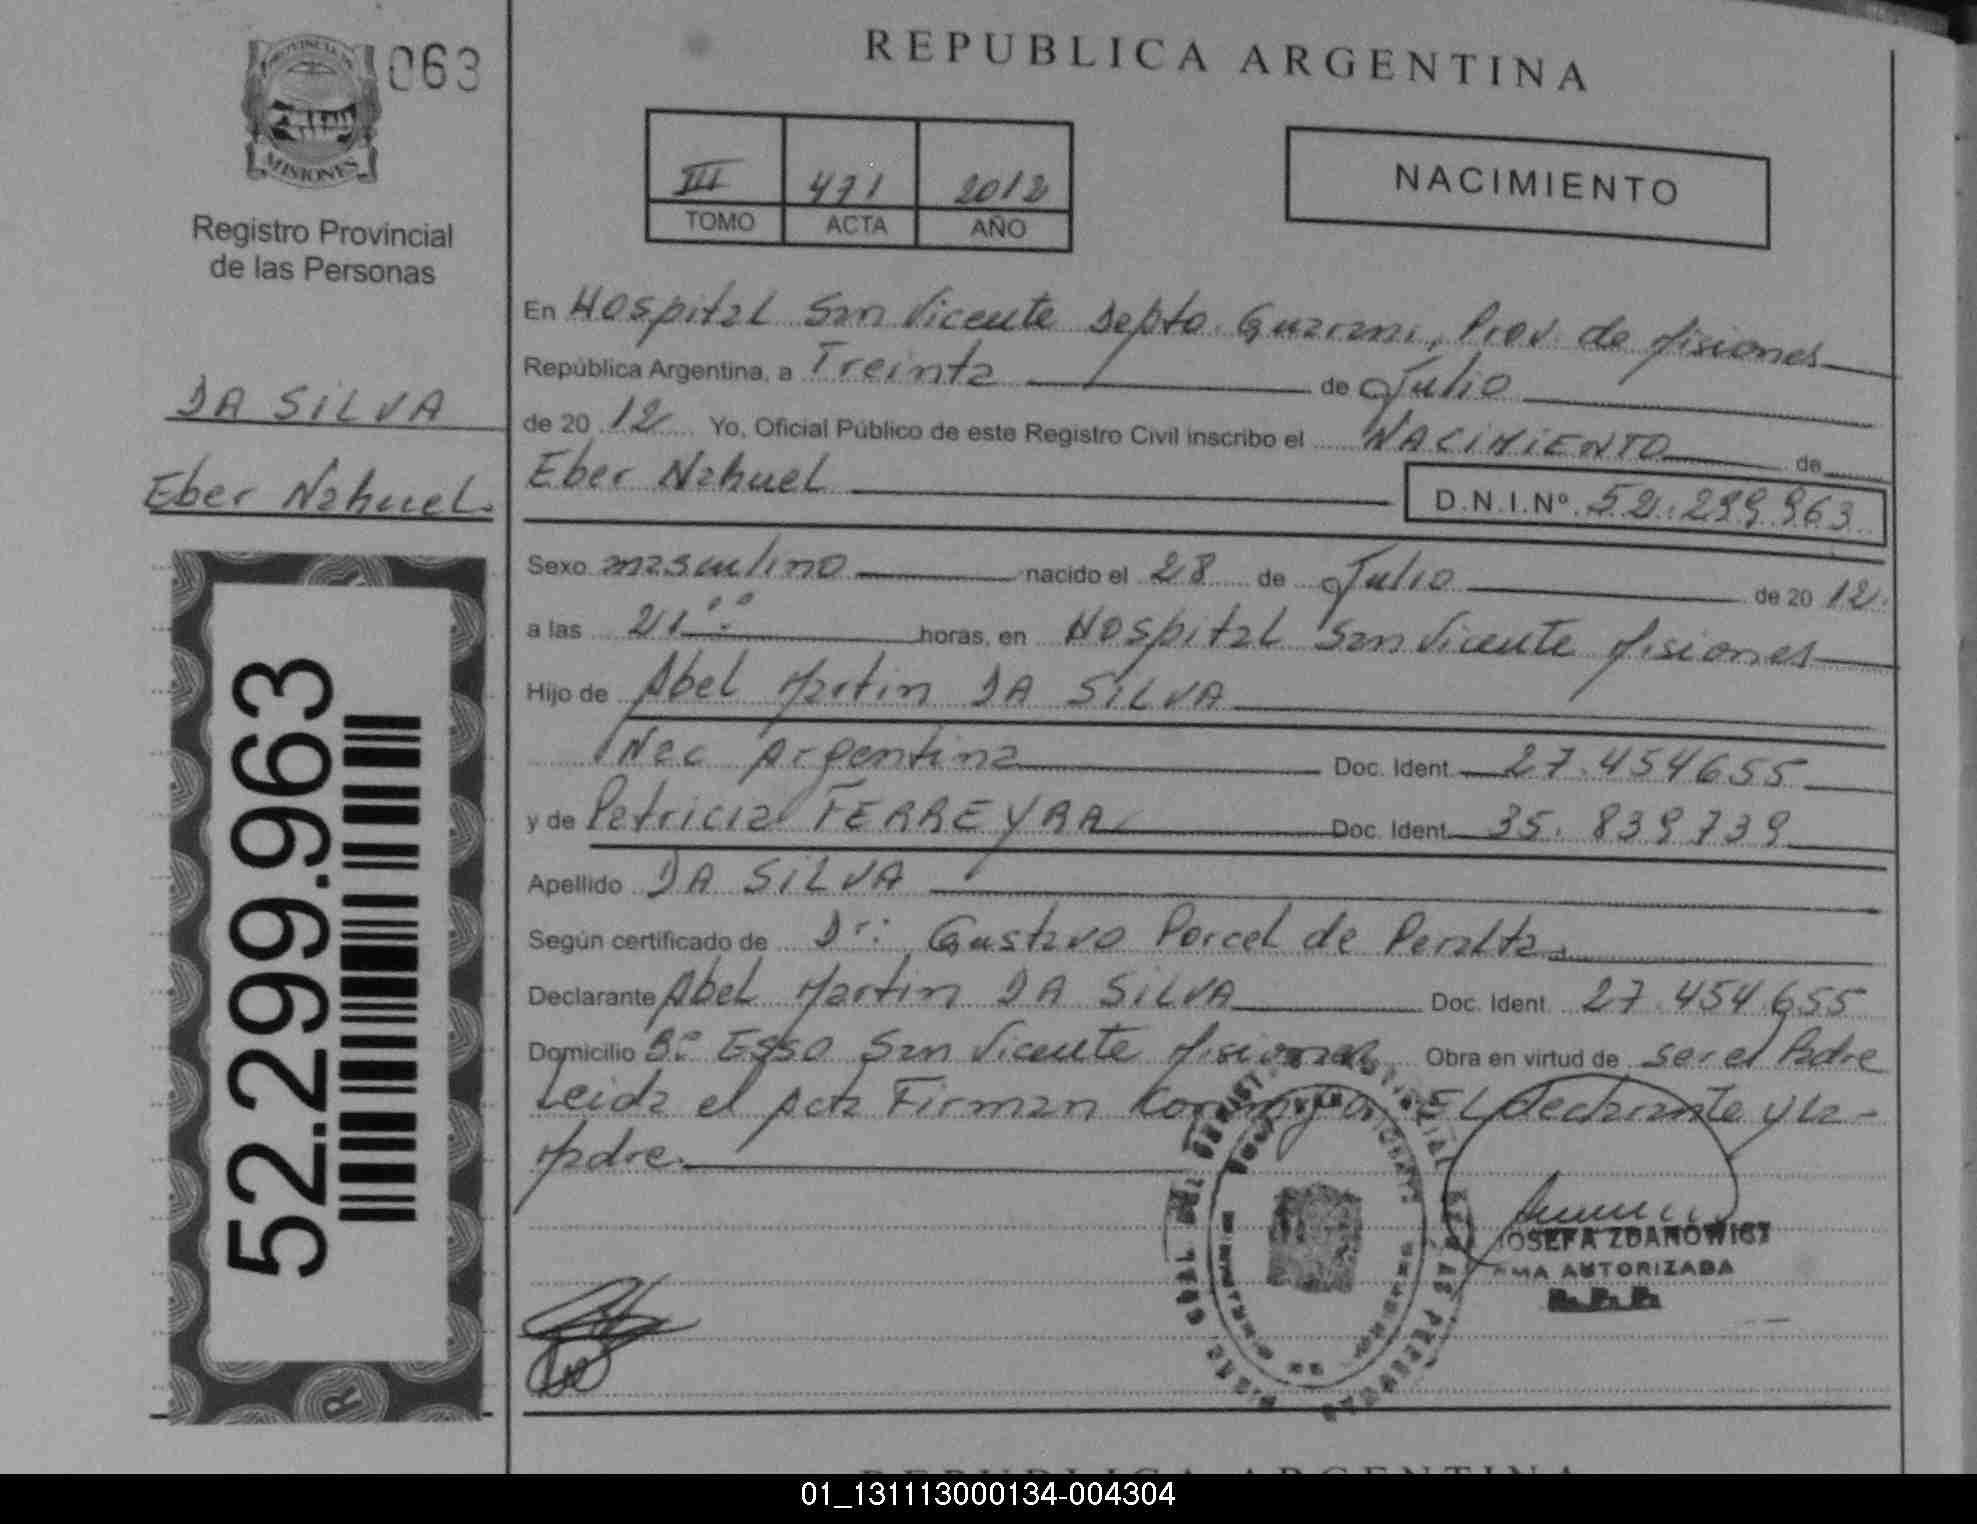 PROVINCIA DE
MISIONES
063
Registro Provincial
de las Personas
DA SILVA
Eber Nahuel.
52.299.963
R
REPUBLICA ARGENTINA
III 471 2012
TOMO ACTA AÑO
NACIMIENTO
En Hospital San Vicente Depto. Guarani, Prov. de Misiones
República Argentina, a Treinta de Julio
de 20 12 Yo, Oficial Público de este Registro Civil inscribo el NACIMIENTO de
Eber Nahuel D.N.I.Nº 52.299.963
Sexo masculino nacido el 28 de Julio de 20 12.
a las 21:00 horas, en Hospital San Vicente Misiones
Hijo de Abel Martin DA SILVA
Nac Argentina Doc. Ident. 27.454655
y de Patricia FERREYRA Doc. Ident. 35.839739
Apellido DA SILVA
Según certificado de Dr: Gustavo Porcel de Peralta.
Declarante Abel Martin DA SILVA Doc. Ident. 27.454.655
Domicilio Bº Esso San Vicente Misiones Obra en virtud de ser el Padre
Leida el Acta Firman Conmigo EL declarante y la-
Madre.
JOSEFA ZDANOWICZ
FIRMA AUTORIZADA
REPUBLICA ARGENTINA
01_131113000134-004304